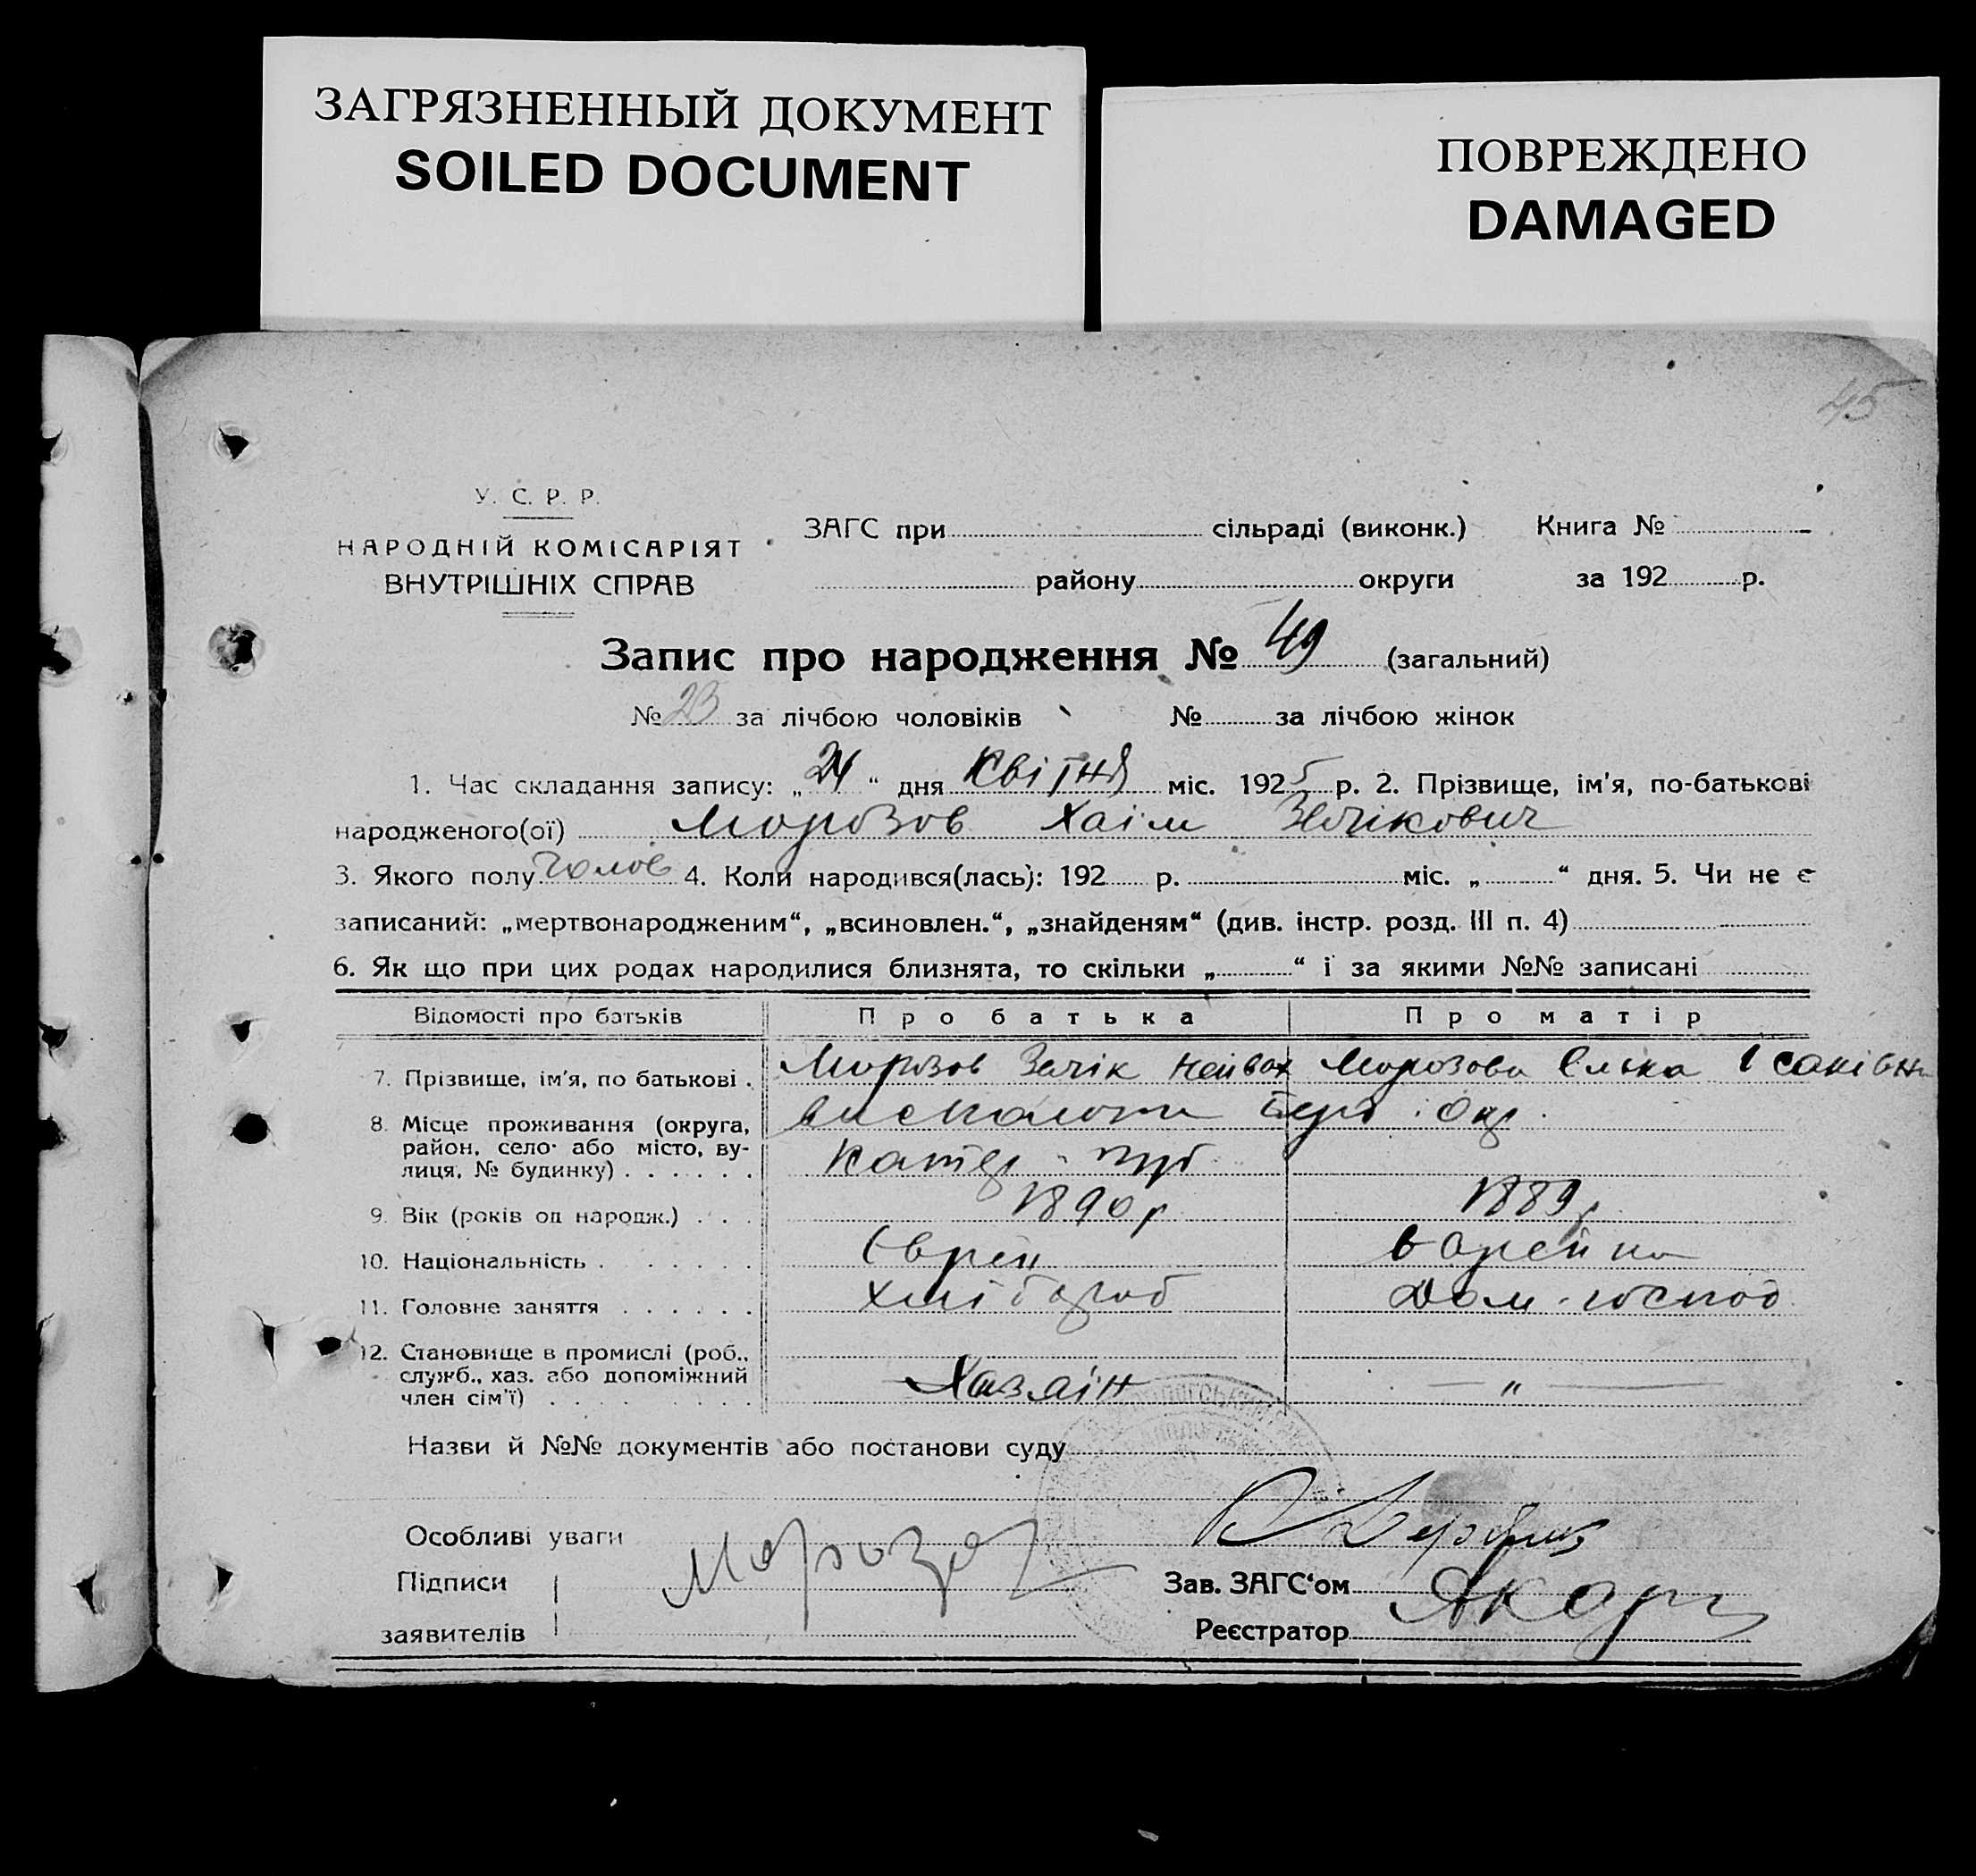 ЗАГРЯЗНЕННЫЙ ДОКУМЕНТ
SOILED DOCUMENT
ПОВРЕЖДЕНО
DAMAGED
45
У. С. Р. Р.
НАРОДНІЙ КОМІСАРІЯТ
ВНУТРІШНІХ СПРАВ
ЗАГС при сільраді (виконк.) Книга №
району округи за 192 р.
Запис про народження № 49 (загальний)
№ 23 за лічбою чоловіків № за лічбою жінок
1. Час складання запису: „24“ дня Квітня міс. 1925 р. 2. Прізвище, ім'я, по-батькові
народженого(ої) Морозов Хаім Зелікович
3. Якого полу чолов 4. Коли народився(лась): 192 р. міс. „ “ дня. 5. Чи не є
записаний: „мертвонародженим“, „всиновлен.“, „знайденям“ (див. інстр. розд. III п. 4)
6. Як що при цих родах народилися близнята, то скільки „ “ і за якими №№ записані
Відомості про батьків Про батька Про матір
7. Прізвище, ім'я, по батькові . Морозов Зелік Морозова Елька Ісаківн
8. Місце проживання (округа,
район, село або місто, ву-
лиця, № будинку) . . . . . . Катер. губ.
9. Вік (років од народж.) . . . 1890 р 1889 р
10. Національність . . . . . . . Єврей Єврейка
11. Головне заняття . . . . . . Хлібороб Дом. господ
12. Становище в промислі (роб.,
служб., хаз. або допоміжний
член сім'ї) . . . . . . . . . Хазяін — „ —
Назви й №№ документів або постанови суду
Особливі уваги
Підписи Морозов Зав. ЗАГС‘ом
заявителів Реєстратор